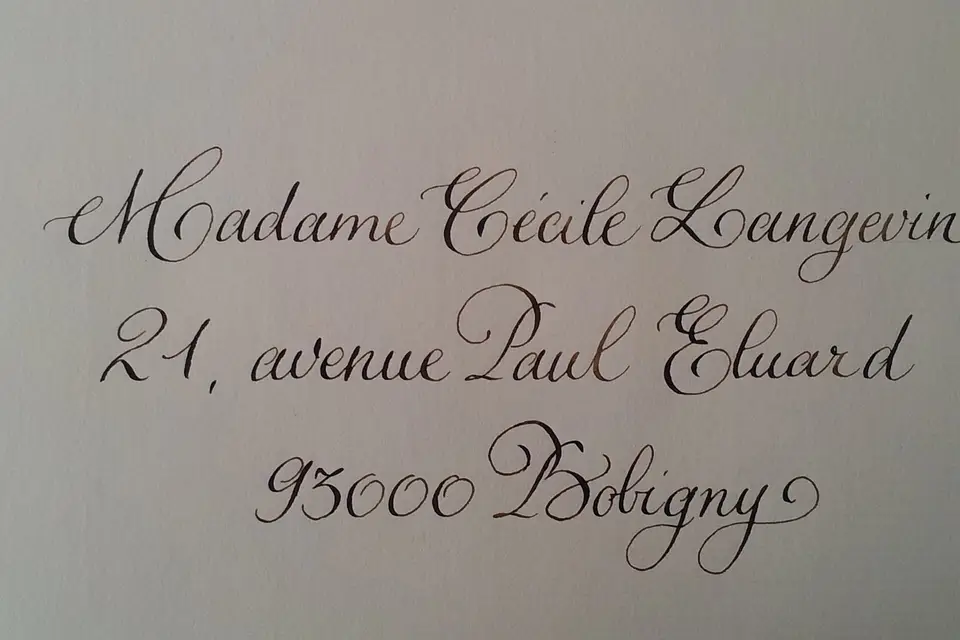 Madame Cécile Langevin
21, avenue Paul Eluard
93000 Bobigny